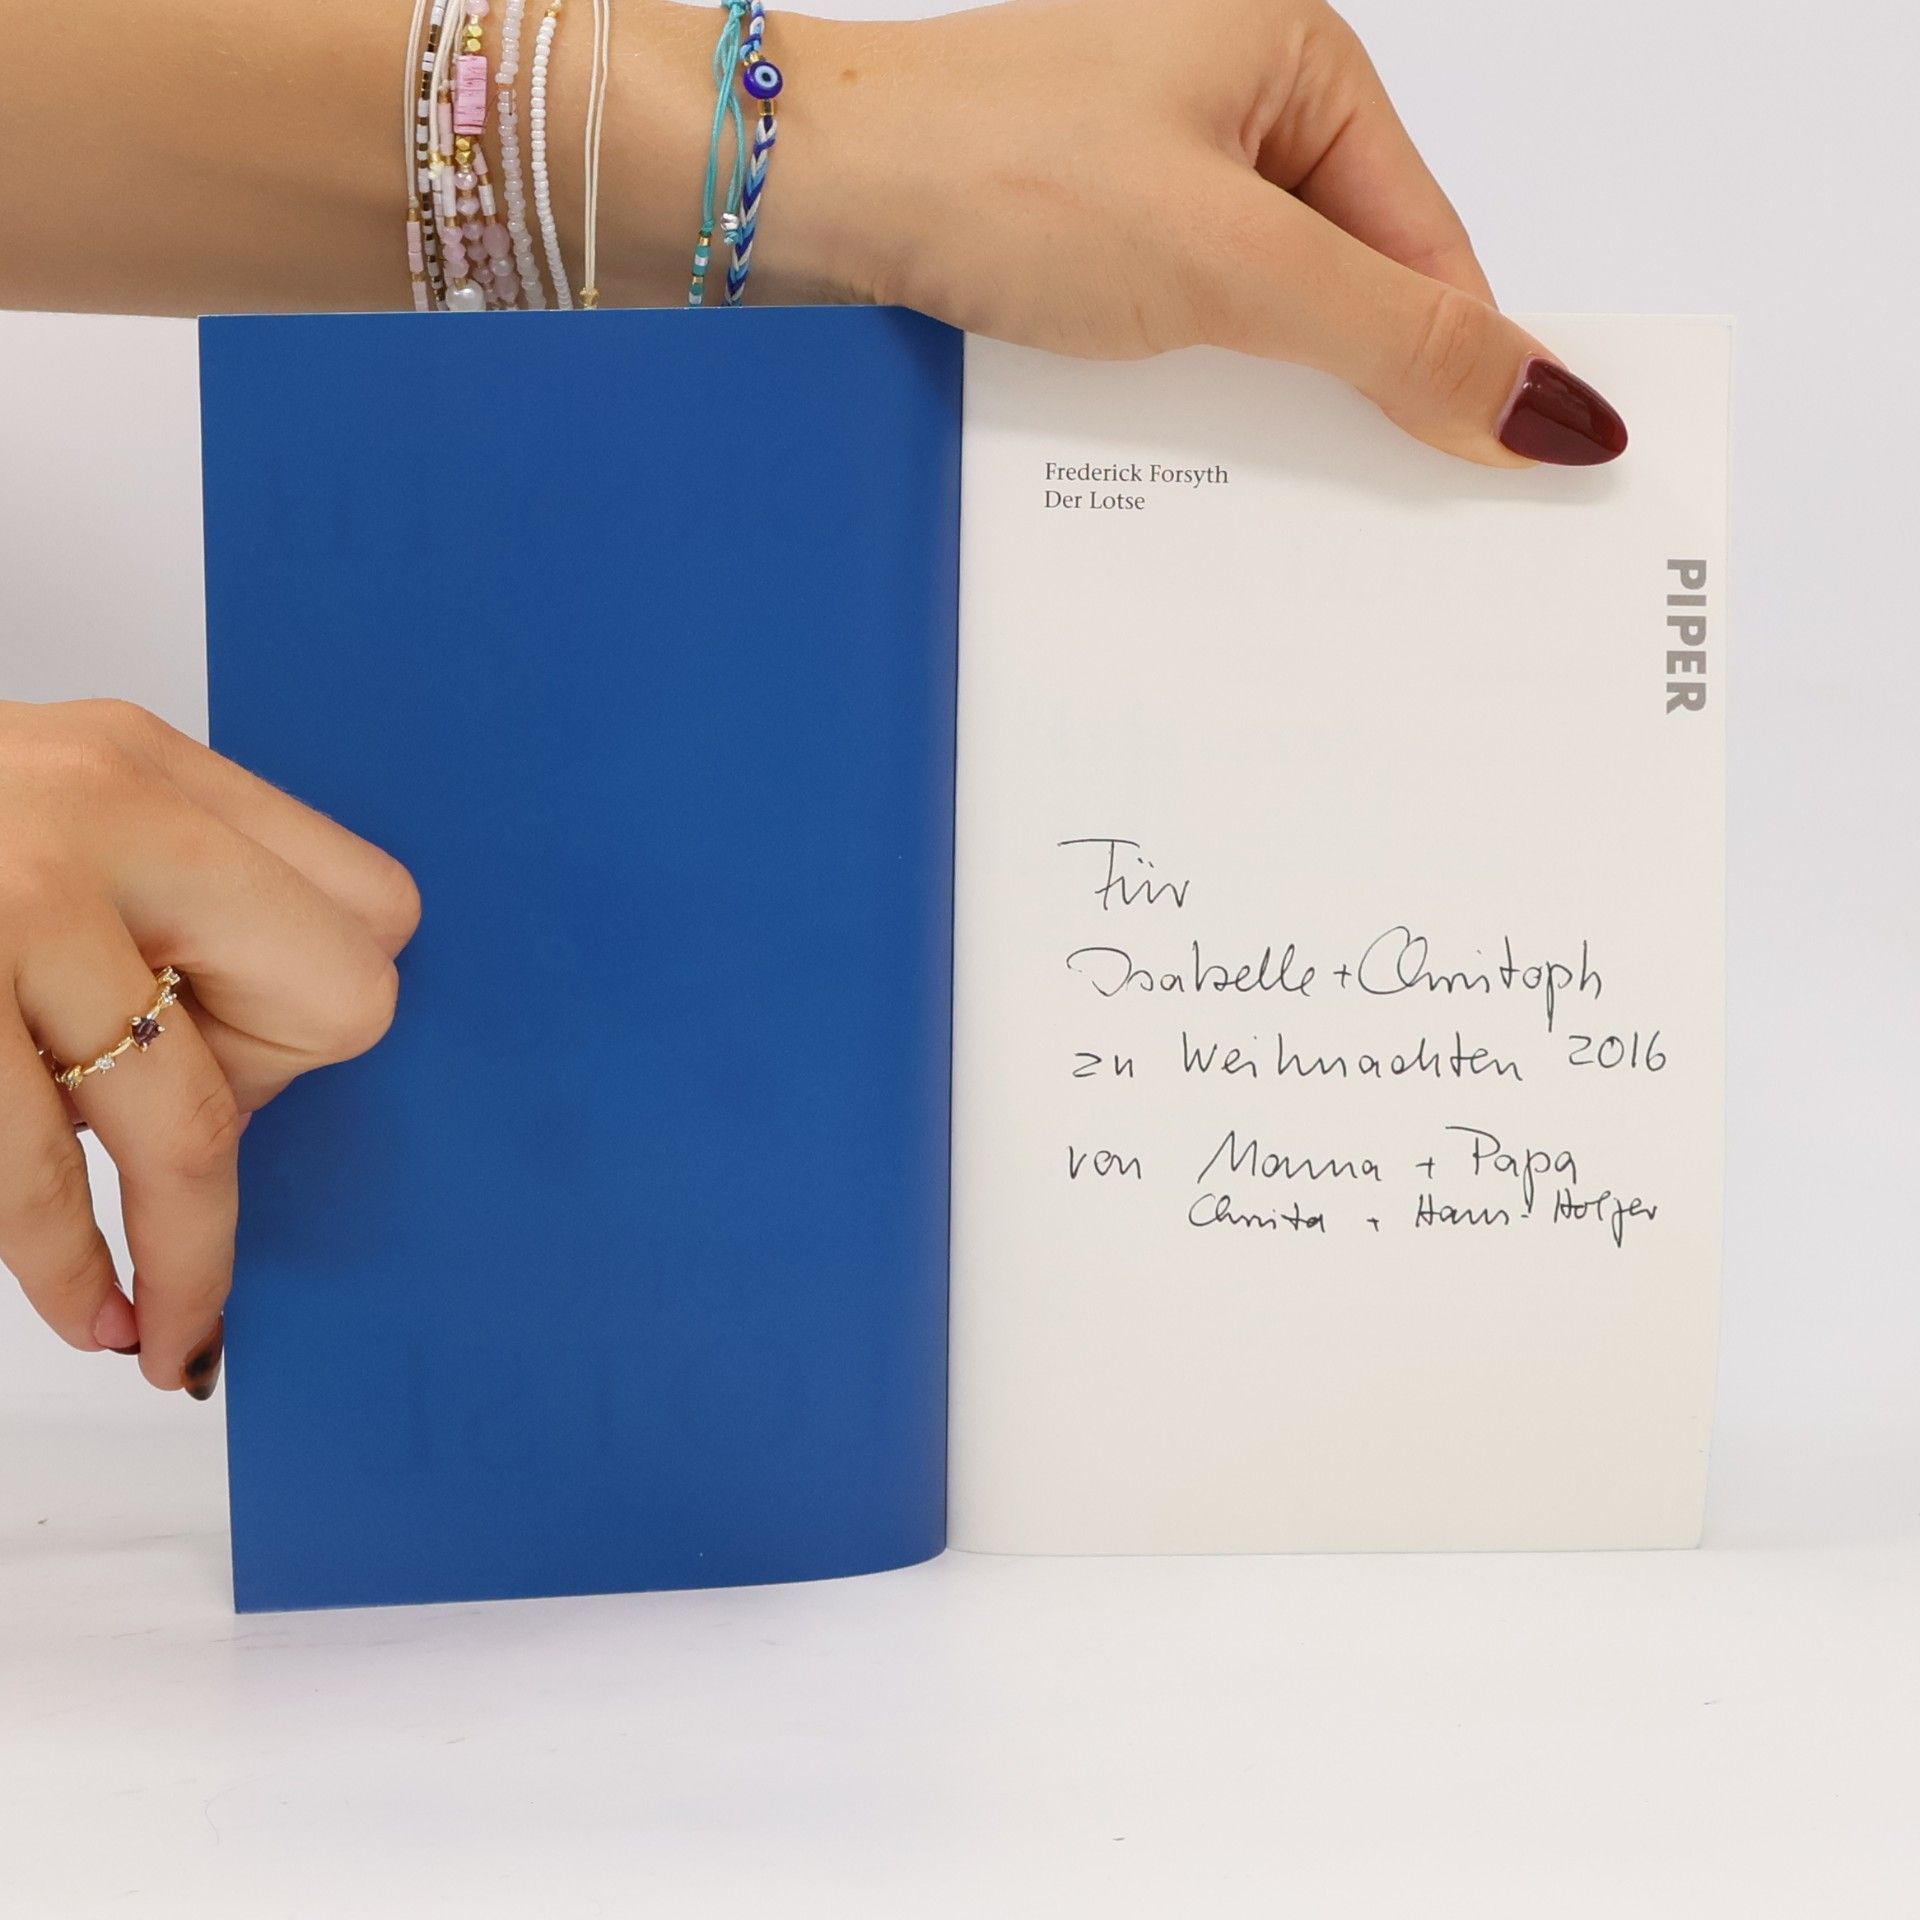 Frederick Forsyth
Der Lotse
PIPER
Für
Isabelle + Christoph
zu Weihnachten 2016
von Mama + Papa
Christa + Hans-Holger